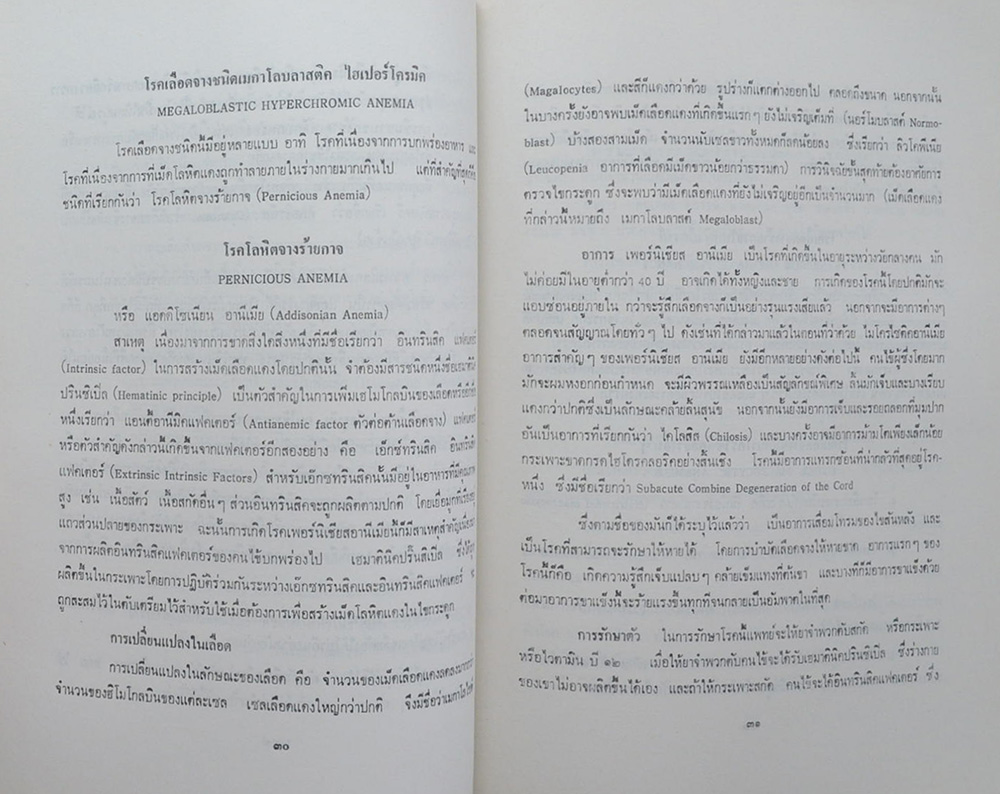 โรคเลือดจางชนิดเมกาโลบลาสติค ไฮเปอร์โครมิค
MEGALOBLASTIC HYPERCHROMIC ANEMIA
โรคเลือดจางชนิดนี้มีอยู่หลายแบบ อาทิ โรคที่เนื่องจากการบกพร่องอาหาร และ
โรคที่เนื่องจากการที่เม็ดโลหิตแดงถูกทำลายภายในร่างกายมากเกินไป แต่ที่สำคัญที่สุดคือ
ชนิดที่เรียกกันว่า โรคโลหิตจางร้ายกาจ (Pernicious Anemia)
โรคโลหิตจางร้ายกาจ
PERNICIOUS ANEMIA
หรือ แอดดิโซเนียน อานีเมีย (Addisonian Anemia)
สาเหตุ เนื่องมาจากการขาดสิ่งใดสิ่งหนึ่งที่มีชื่อเรียกว่า อินทรินสิค แฟคเตอร์
(Intrinsic factor) ในการสร้างเม็ดเลือดแดงโดยปกตินั้น จำต้องมีสารชนิดหนึ่งชื่อเฮมาตินิค
ปรินซิเปิล (Hematinic principle) เป็นตัวสำคัญในการเพิ่มเฮโมโกลบินของเลือดหรืออีกชื่อ
หนึ่งเรียกว่า แอนตี้อานีมิคแฟคเตอร์ (Antianemic factor ตัวต่อต้านเลือดจาง) แฟคเตอร์
หรือตัวสำคัญดังกล่าวนี้เกิดขึ้นจากแฟคเตอร์อีกสองอย่าง คือ เอ็กซ์ทรินสิค อินทรินสิค
แฟคเตอร์ (Extrinsic Intrinsic Factors) สำหรับเอ๊กซทรินสิคนั้นมีอยู่ในอาหารที่มีคุณภาพ
สูง เช่น เนื้อสัตว์ เนื้อสกัดอื่นๆ ส่วนอินทรินสิคจะถูกผลิตตามปกติ โดยเยื่อมูกที่เรียง
แถวส่วนปลายของกระเพาะ ฉะนั้นการเกิดโรคเพอร์นิเชียสอานีเมียนี้ก็มีสาเหตุสำคัญเนื่อง
จากการผลิตอินทรินสิคแฟคเตอร์ของคนไข้บกพร่องไป เฮมาตินิคปรินสิเปิล ซึ่งได้ถูก
ผลิตขึ้นในกระเพาะโดยการปฏิบัติร่วมกันระหว่างเอ็กซทรินสิคและอินทรินสิคแฟคเตอร์ จะ
ถูกสะสมไว้ในตับเตรียมไว้สำหรับใช้เมื่อต้องการเพื่อสร้างเม็ดโลหิตแดงในไขกระดูก
การเปลี่ยนแปลงในเลือด
การเปลี่ยนแปลงในลักษณะของเลือด คือ จำนวนของเม็ดเลือดแดงลดลงมากกว่า
จำนวนของฮีโมโกลบินของแต่ละเซล เซลเลือดแดงใหญ่กว่าปกติ จึงมีชื่อว่าเมกาโลไซด์
๓๐
(Magalocytes) และสีก็แดงกว่าด้วย รูปร่างก็แตกต่างออกไป ตลอดถึงขนาด นอกจากนั้น
ในบางครั้งยังอาจพบเม็ดเลือดแดงที่เกิดขึ้นแรกๆ ยังไม่เจริญเต็มที่ (นอร์โมบลาสต์ Normo-
blast) บ้างสองสามเม็ด จำนวนนับเซลขาวทั้งหมดก็ลดน้อยลง ซึ่งเรียกว่า ลิวโคพีเนีย
(Leucopenia อาการที่เลือดมีเม็ดขาวน้อยกว่าธรรมดา) การวินิจฉัยขั้นสุดท้ายต้องอาศัยการ
ตรวจไขกระดูก ซึ่งจะพบว่ามีเม็ดเลือดแดงที่ยังไม่เจริญอยู่อีกเป็นจำนวนมาก (เม็ดเลือดแดง
ที่กล่าวนี้หมายถึง เมกาโลบลาสต์ Megaloblast)
อาการ เพอร์นิเชียส อานีเมีย เป็นโรคที่เกิดขึ้นในอายุระหว่างวัยกลางคน มัก
ไม่ค่อยมีในอายุต่ำกว่า 40 ปี อาจเกิดได้ทั้งหญิงและชาย การเกิดของโรคนี้โดยปกติมักจะ
แอบซ่อนอยู่ภายใน กว่าจะรู้สึกเลือดจางก็เป็นอย่างรุนแรงเสียแล้ว นอกจากจะมีอาการต่างๆ
ตลอดจนสัญญาณโดยทั่วๆ ไป ดังเช่นที่ได้กล่าวมาแล้วในตอนที่ว่าด้วย ไมโครไซติคอานีเมีย
อาการสำคัญๆ ของเพอร์นิเชียส อานีเมีย ยังมีอีกหลายอย่างดังต่อไปนี้ คนไข้ผู้ซึ่งโดยมาก
มักจะผมหงอกก่อนกำหนด จะมีผิวพรรณเหลืองเป็นสัญลักษณ์พิเศษ ลิ้นมักเจ็บและบางเรียบ
แดงกว่าปกติซึ่งเป็นลักษณะคล้ายลิ้นสุนัข นอกจากนั้นยังมีอาการเจ็บและรอยถลอกที่มุมปาก
อันเป็นอาการที่เรียกกันว่า ไคโลสิส (Chilosis) และบางครั้งอาจมีอาการม้ามโตเพียงเล็กน้อย
กระเพาะขาดกรดไฮโดรคลอริคอย่างสิ้นเชิง โรคนี้มีอาการแทรกซ้อนที่น่ากลัวที่สุดอยู่โรค-
หนึ่ง ซึ่งมีชื่อเรียกว่า Subacute Combine Degeneration of the Cord
ซึ่งตามชื่อของมันก็ได้ระบุไว้แล้วว่า เป็นอาการเสื่อมโทรมของไขสันหลัง และ
เป็นโรคที่สามารถจะรักษาให้หายได้ โดยการบำบัดเลือดจางให้หายขาด อาการแรกๆ ของ
โรคนี้ก็คือ เกิดความรู้สึกเจ็บแปลบๆ คล้ายเข็มแทงที่ต้นขา และบางทีก็มีอาการขาแข็งด้วย
ต่อมาอาการขาแข็งนี้จะร้ายแรงขึ้นทุกทีจนกลายเป็นอัมพาตในที่สุด
การรักษาตัว ในการรักษาโรคนี้แพทย์จะให้ยาจำพวกตับสกัด หรือกระเพาะ
หรือไวตามิน บี ๑๒ เมื่อให้ยาจำพวกตับคนไข้จะได้รับเฮมาตินิคปรินซิเปิล ซึ่งร่างกาย
ของเขาไม่อาจผลิตขึ้นได้เอง และถ้าให้กระเพาะสกัด คนไข้จะได้อินทรินสิคแฟคเตอร์ ซึ่ง
๓๑